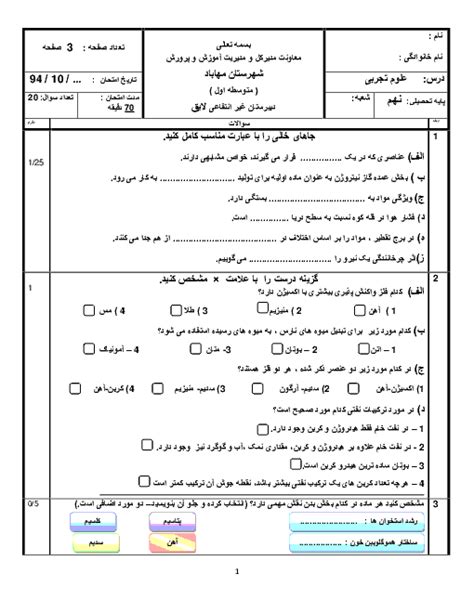 نام :
نام خانوادگی :
بسمه تعالی
معاونت مدیرکل و مدیریت آموزش و پرورش
شهرستان مهاباد
( متوسطه اول )
دبیرستان غیر انتفاعی لایق
تعداد صفحه : 3 صفحه
درس: علوم تجربی
تاریخ امتحان : ... / 10 / 94
پایه تحصیلی: نهم
شعبه:
مدت امتحان : 70 دقیقه
تعداد سوال: 20
سوالات
1 جاهای خالی را با عبارت مناسب کامل کنید. 1/25
الف) عناصری که در یک ............... قرار می گیرند، خواص مشابهی دارند.
ب ) بخش عمده گاز نیتروژن به عنوان ماده اولیه برای تولید ........................... به کار می رود.
ج) ویژگی مواد به .................................... بستگی دارد.
د) فشار هوا در قله کوه نسبت به سطح دریا .............. است.
ه) در برج تقطیر ، مواد را بر اساس اختلاف در ................................... از هم جدا می کنند.
ز)اثر چرخانندگی یک نیرو را ............................... می گوییم.
2 گزینه درست را با علامت × مشخص کنید. 1
الف) کدام فلز واکنش پذیری بیشتری با اکسیژن دارد؟
1 ) آهن 2 ) منیزیم 3 ) طلا 4 ) مس
ب) کدام مورد زیر برای تبدیل میوه های نارس ، به میوه های رسیده استفاده می شود؟
1 – اتن 2 – بوتان 3- متان 4 – آمونیاک
ج) در کدام مورد زیر دو عنصر ذکر شده ، هر دو فلز هستند؟
1) اکسیژن-آهن 2) سدیم- آرگون 3) سدیم- منیزیم 4) کربن-آهن
د) در مورد ترکیبات نفتی کدام مورد صحیح است؟
1 – در نفت خام فقط هیدروژن و کربن وجود دارد.
2 - در نفت خام علاوه بر هیدروژن و کربن، مقداری نمک ،آب و گوگرد نیز وجود دارد.
3 – بوتان ساده ترین هیدرو کربن است.
4 – هر چه تعداد کربن های یک ترکیب نفتی بیشتر باشد، نقطه جوش آن ترکیب کمتر است
3 مشخص کنید هر ماده در کدام بخش بدن نقش مهمی دارد؟ ( انتخاب کرده و جلو آن بنویسید– دو مورد اضافی است.) 0/5
رشد استخوان ها : ........................ پتاسیم کلسیم
ساختار هموگلوبین خون : .................. آهن سدیم
1